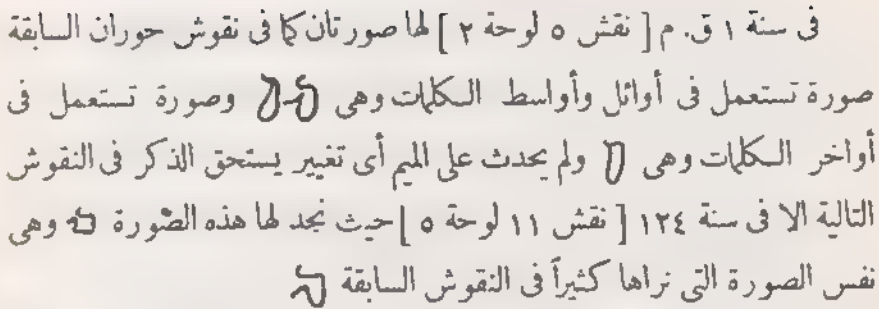 فى سنة ١ ق. م [ نقش ٥ لوحة ٢ ] لها صورتان كما فى نقوش حوران السابقة
صورة تستعمل فى أوائل وأواسط الكلمات وهى وصورة تستعمل فى
أواخر الكلمات وهى ولم يحدث على الميم أى تغيير يستحق الذكر فى النقوش
التالية الا فى سنة ١٢٤ [ نقش ١١ لوحة ٥ ] حيث نجد لها هذه الصورة وهى
نفس الصورة التى نراها كثيراً فى النقوش السابقة